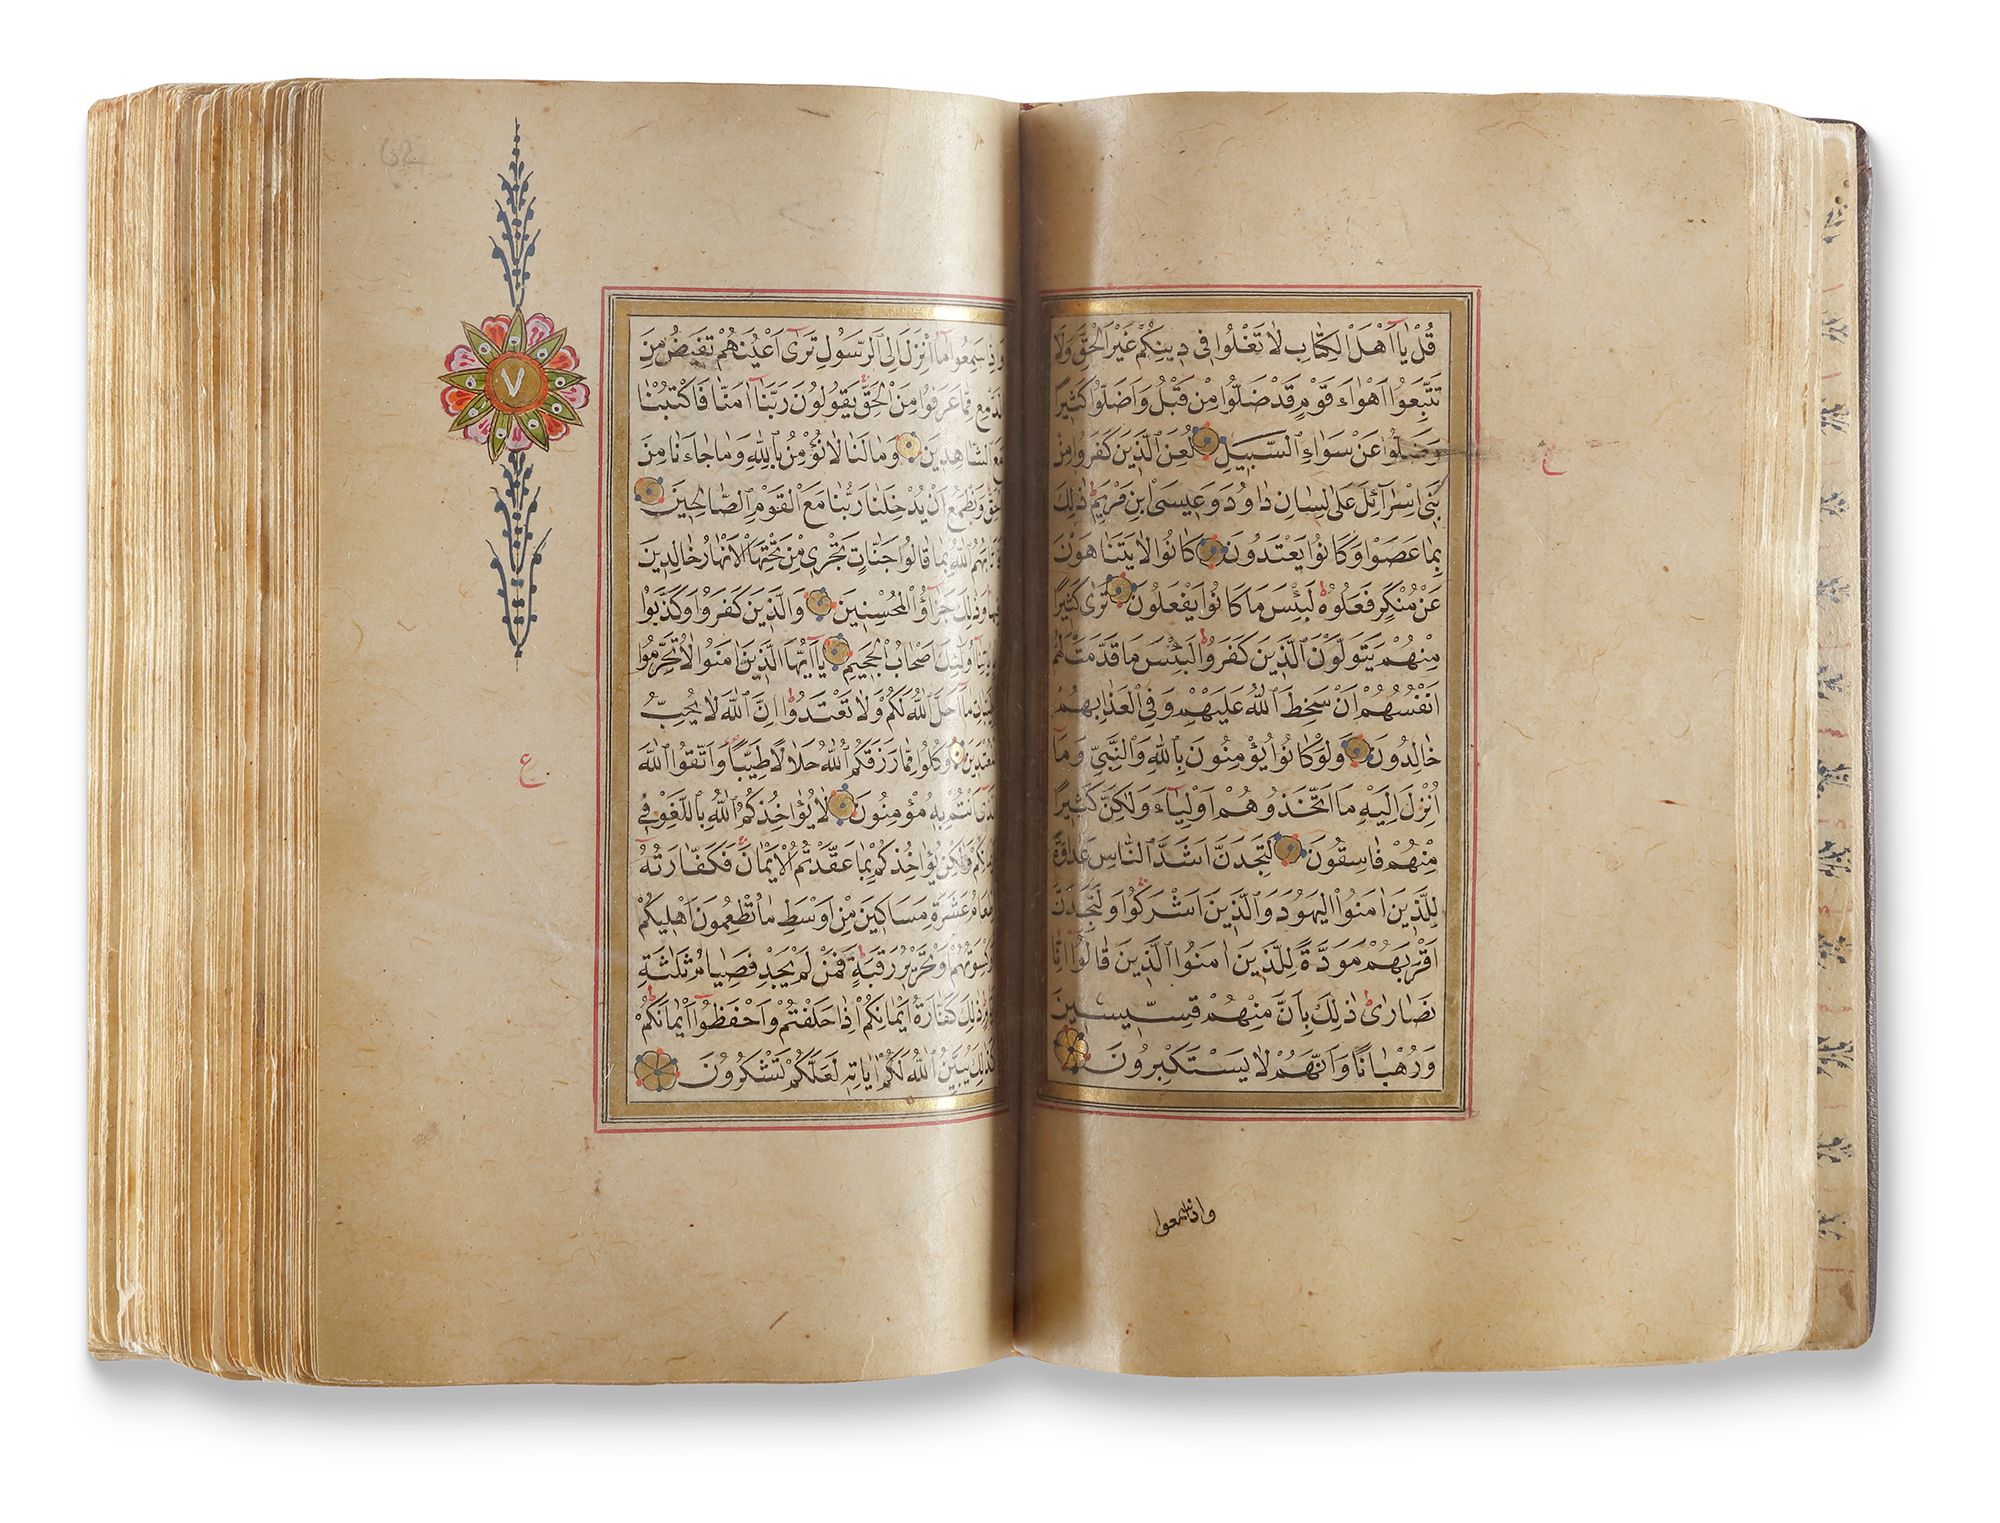 قُلْ يَا اَهْلَ الْكِتَابِ لَا تَغْلُوا فِى دِينِكُمْ غَيْرَ الْحَقِّ وَلَا
تَتَّبِعُوا اَهْوَاءَ قَوْمٍ قَدْ ضَلُّوا مِنْ قَبْلُ وَاَضَلُّوا كَثِيرًا
وَضَلُّوا عَنْ سَوَاءِ السَّبِيلِ لُعِنَ الَّذِينَ كَفَرُوا مِنْ
بَنِى اِسْرَائِلَ عَلَى لِسَانِ دَاوُدَ وَعِيسَى ابْنِ مَرْيَمَ ذٰلِكَ
بِمَا عَصَوْا وَكَانُوا يَعْتَدُونَ كَانُوا لَا يَتَنَاهَوْنَ
عَنْ مُنْكَرٍ فَعَلُوهُ لَبِئْسَ مَا كَانُوا يَفْعَلُونَ تَرٰى كَثِيرًا
مِنْهُمْ يَتَوَلَّوْنَ الَّذِينَ كَفَرُوا لَبِئْسَ مَا قَدَّمَتْ لَهُمْ
اَنْفُسُهُمْ اَنْ سَخِطَ اللّٰهُ عَلَيْهِمْ وَفِى الْعَذَابِ هُمْ
خَالِدُونَ وَلَوْ كَانُوا يُؤْمِنُونَ بِاللّٰهِ وَالنَّبِىِّ وَمَا
اُنْزِلَ اِلَيْهِ مَا اتَّخَذُوهُمْ اَوْلِيَاءَ وَلٰكِنَّ كَثِيرًا
مِنْهُمْ فَاسِقُونَ لَتَجِدَنَّ اَشَدَّ النَّاسِ عَدَاوَةً
لِلَّذِينَ اٰمَنُوا الْيَهُودَ وَالَّذِينَ اَشْرَكُوا وَلَتَجِدَنَّ
اَقْرَبَهُمْ مَوَدَّةً لِلَّذِينَ اٰمَنُوا الَّذِينَ قَالُوا اِنَّا
نَصَارٰى ذٰلِكَ بِاَنَّ مِنْهُمْ قِسِّيسِينَ
وَرُهْبَانًا وَاَنَّهُمْ لَا يَسْتَكْبِرُونَ
واذا سمعوا
ع
وَاِذَا سَمِعُوا مَا اُنْزِلَ اِلَى الرَّسُولِ تَرٰى اَعْيُنَهُمْ تَفِيضُ مِنَ
الدَّمْعِ مِمَّا عَرَفُوا مِنَ الْحَقِّ يَقُولُونَ رَبَّنَا اٰمَنَّا فَاكْتُبْنَا
مَعَ الشَّاهِدِينَ وَمَا لَنَا لَا نُؤْمِنُ بِاللّٰهِ وَمَا جَاءَنَا مِنَ
الْحَقِّ وَنَطْمَعُ اَنْ يُدْخِلَنَا رَبُّنَا مَعَ الْقَوْمِ الصَّالِحِينَ
فَاَثَابَهُمُ اللّٰهُ بِمَا قَالُوا جَنَّاتٍ تَجْرِى مِنْ تَحْتِهَا الْاَنْهَارُ خَالِدِينَ
فِيهَا وَذٰلِكَ جَزَاؤُا الْمُحْسِنِينَ وَالَّذِينَ كَفَرُوا وَكَذَّبُوا
بِاٰيَاتِنَا اُولٰئِكَ اَصْحَابُ الْجَحِيمِ يَا اَيُّهَا الَّذِينَ اٰمَنُوا لَا تُحَرِّمُوا
طَيِّبَاتِ مَا اَحَلَّ اللّٰهُ لَكُمْ وَلَا تَعْتَدُوا اِنَّ اللّٰهَ لَا يُحِبُّ
الْمُعْتَدِينَ وَكُلُوا مِمَّا رَزَقَكُمُ اللّٰهُ حَلَالًا طَيِّبًا وَاتَّقُوا اللّٰهَ
الَّذِى اَنْتُمْ بِهِ مُؤْمِنُونَ لَا يُؤَاخِذُكُمُ اللّٰهُ بِاللَّغْوِ فِى
اَيْمَانِكُمْ وَلٰكِنْ يُؤَاخِذُكُمْ بِمَا عَقَّدْتُمُ الْاَيْمَانَ فَكَفَّارَتُهُ
اِطْعَامُ عَشَرَةِ مَسَاكِينَ مِنْ اَوْسَطِ مَا تُطْعِمُونَ اَهْلِيكُمْ
اَوْ كِسْوَتُهُمْ اَوْ تَحْرِيرُ رَقَبَةٍ فَمَنْ لَمْ يَجِدْ فَصِيَامُ ثَلٰثَةِ
اَيَّامٍ ذٰلِكَ كَفَّارَةُ اَيْمَانِكُمْ اِذَا حَلَفْتُمْ وَاحْفَظُوا اَيْمَانَكُمْ
كَذٰلِكَ يُبَيِّنُ اللّٰهُ لَكُمْ اٰيَاتِهِ لَعَلَّكُمْ تَشْكُرُونَ
٧
ع